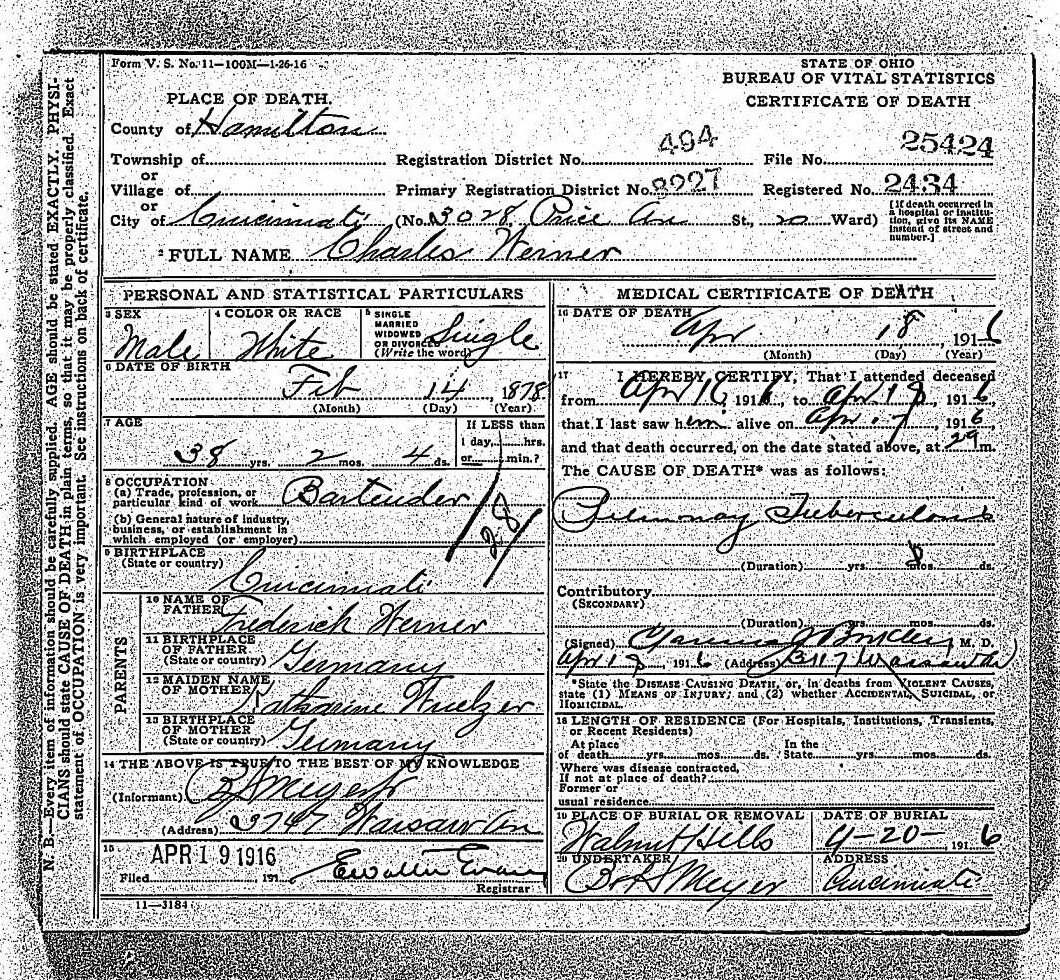 Form V. S. No. 11—100M—1-26-16
STATE OF OHIO
BUREAU OF VITAL STATISTICS
CERTIFICATE OF DEATH
PLACE OF DEATH.
County of Hamilton
Township of
or
Village of
or
City of Cincinnati (No. 3028 Price Av St., 20 Ward)
Registration District No. 494 File No. 25424
Primary Registration District No. 8227 Registered No. 2434
[If death occurred in a hospital or institution, give its NAME instead of street and number.]
2 FULL NAME Charles Werner
PERSONAL AND STATISTICAL PARTICULARS
3 SEX Male
4 COLOR OR RACE White
5 SINGLE MARRIED WIDOWED OR DIVORCED (Write the word) Single
6 DATE OF BIRTH
Feb 14, 1878
(Month) (Day) (Year)
7 AGE
38 yrs. 2 mos. 4 ds.
If LESS than
1 day, hrs.
or min.?
8 OCCUPATION
(a) Trade, profession, or
particular kind of work Bartender
(b) General nature of industry,
business, or establishment in
which employed (or employer)
28
9 BIRTHPLACE
(State or country)
Cincinnati
PARENTS
10 NAME OF
FATHER Frederick Werner
11 BIRTHPLACE
OF FATHER
(State or country) Germany
12 MAIDEN NAME
OF MOTHER Katharine
13 BIRTHPLACE
OF MOTHER
(State or country) Germany
14 THE ABOVE IS TRUE TO THE BEST OF MY KNOWLEDGE
(Informant) Meyer
(Address) 3747 Warsaw Av
15
Filed APR 19 1916 191
Registrar
11—3184
MEDICAL CERTIFICATE OF DEATH
16 DATE OF DEATH
Apr 18, 1916
(Month) (Day) (Year)
17 I HEREBY CERTIFY, That I attended deceased
from Apr 16, 1916, to Apr 18, 1916,
that I last saw him alive on Apr 17, 1916
and that death occurred, on the date stated above, at m.
The CAUSE OF DEATH* was as follows:
Pulmonary Tuberculosis
(Duration) yrs. mos. ds.
Contributory
(SECONDARY)
(Duration) yrs. mos. ds.
(Signed) M. D.
Apr 18, 1916 (Address) 3117 Warsaw Av
*State the DISEASE CAUSING DEATH, or, in deaths from VIOLENT CAUSES,
state (1) MEANS OF INJURY; and (2) whether ACCIDENTAL, SUICIDAL, or
HOMICIDAL.
18 LENGTH OF RESIDENCE (For Hospitals, Institutions, Transients,
or Recent Residents)
At place
of death yrs. mos. ds.
In the
State yrs. mos. ds.
Where was disease contracted,
If not at place of death?
Former or
usual residence
19 PLACE OF BURIAL OR REMOVAL
Walnut Hills
DATE OF BURIAL
4-20- 1916
20 UNDERTAKER
Meyer
ADDRESS
Cincinnati
N. B.—Every item of information should be carefully supplied. AGE should be stated EXACTLY. PHYSI-
CIANS should state CAUSE OF DEATH in plain terms, so that it may be properly classified. Exact
statement of OCCUPATION is very important. See instructions on back of certificate.